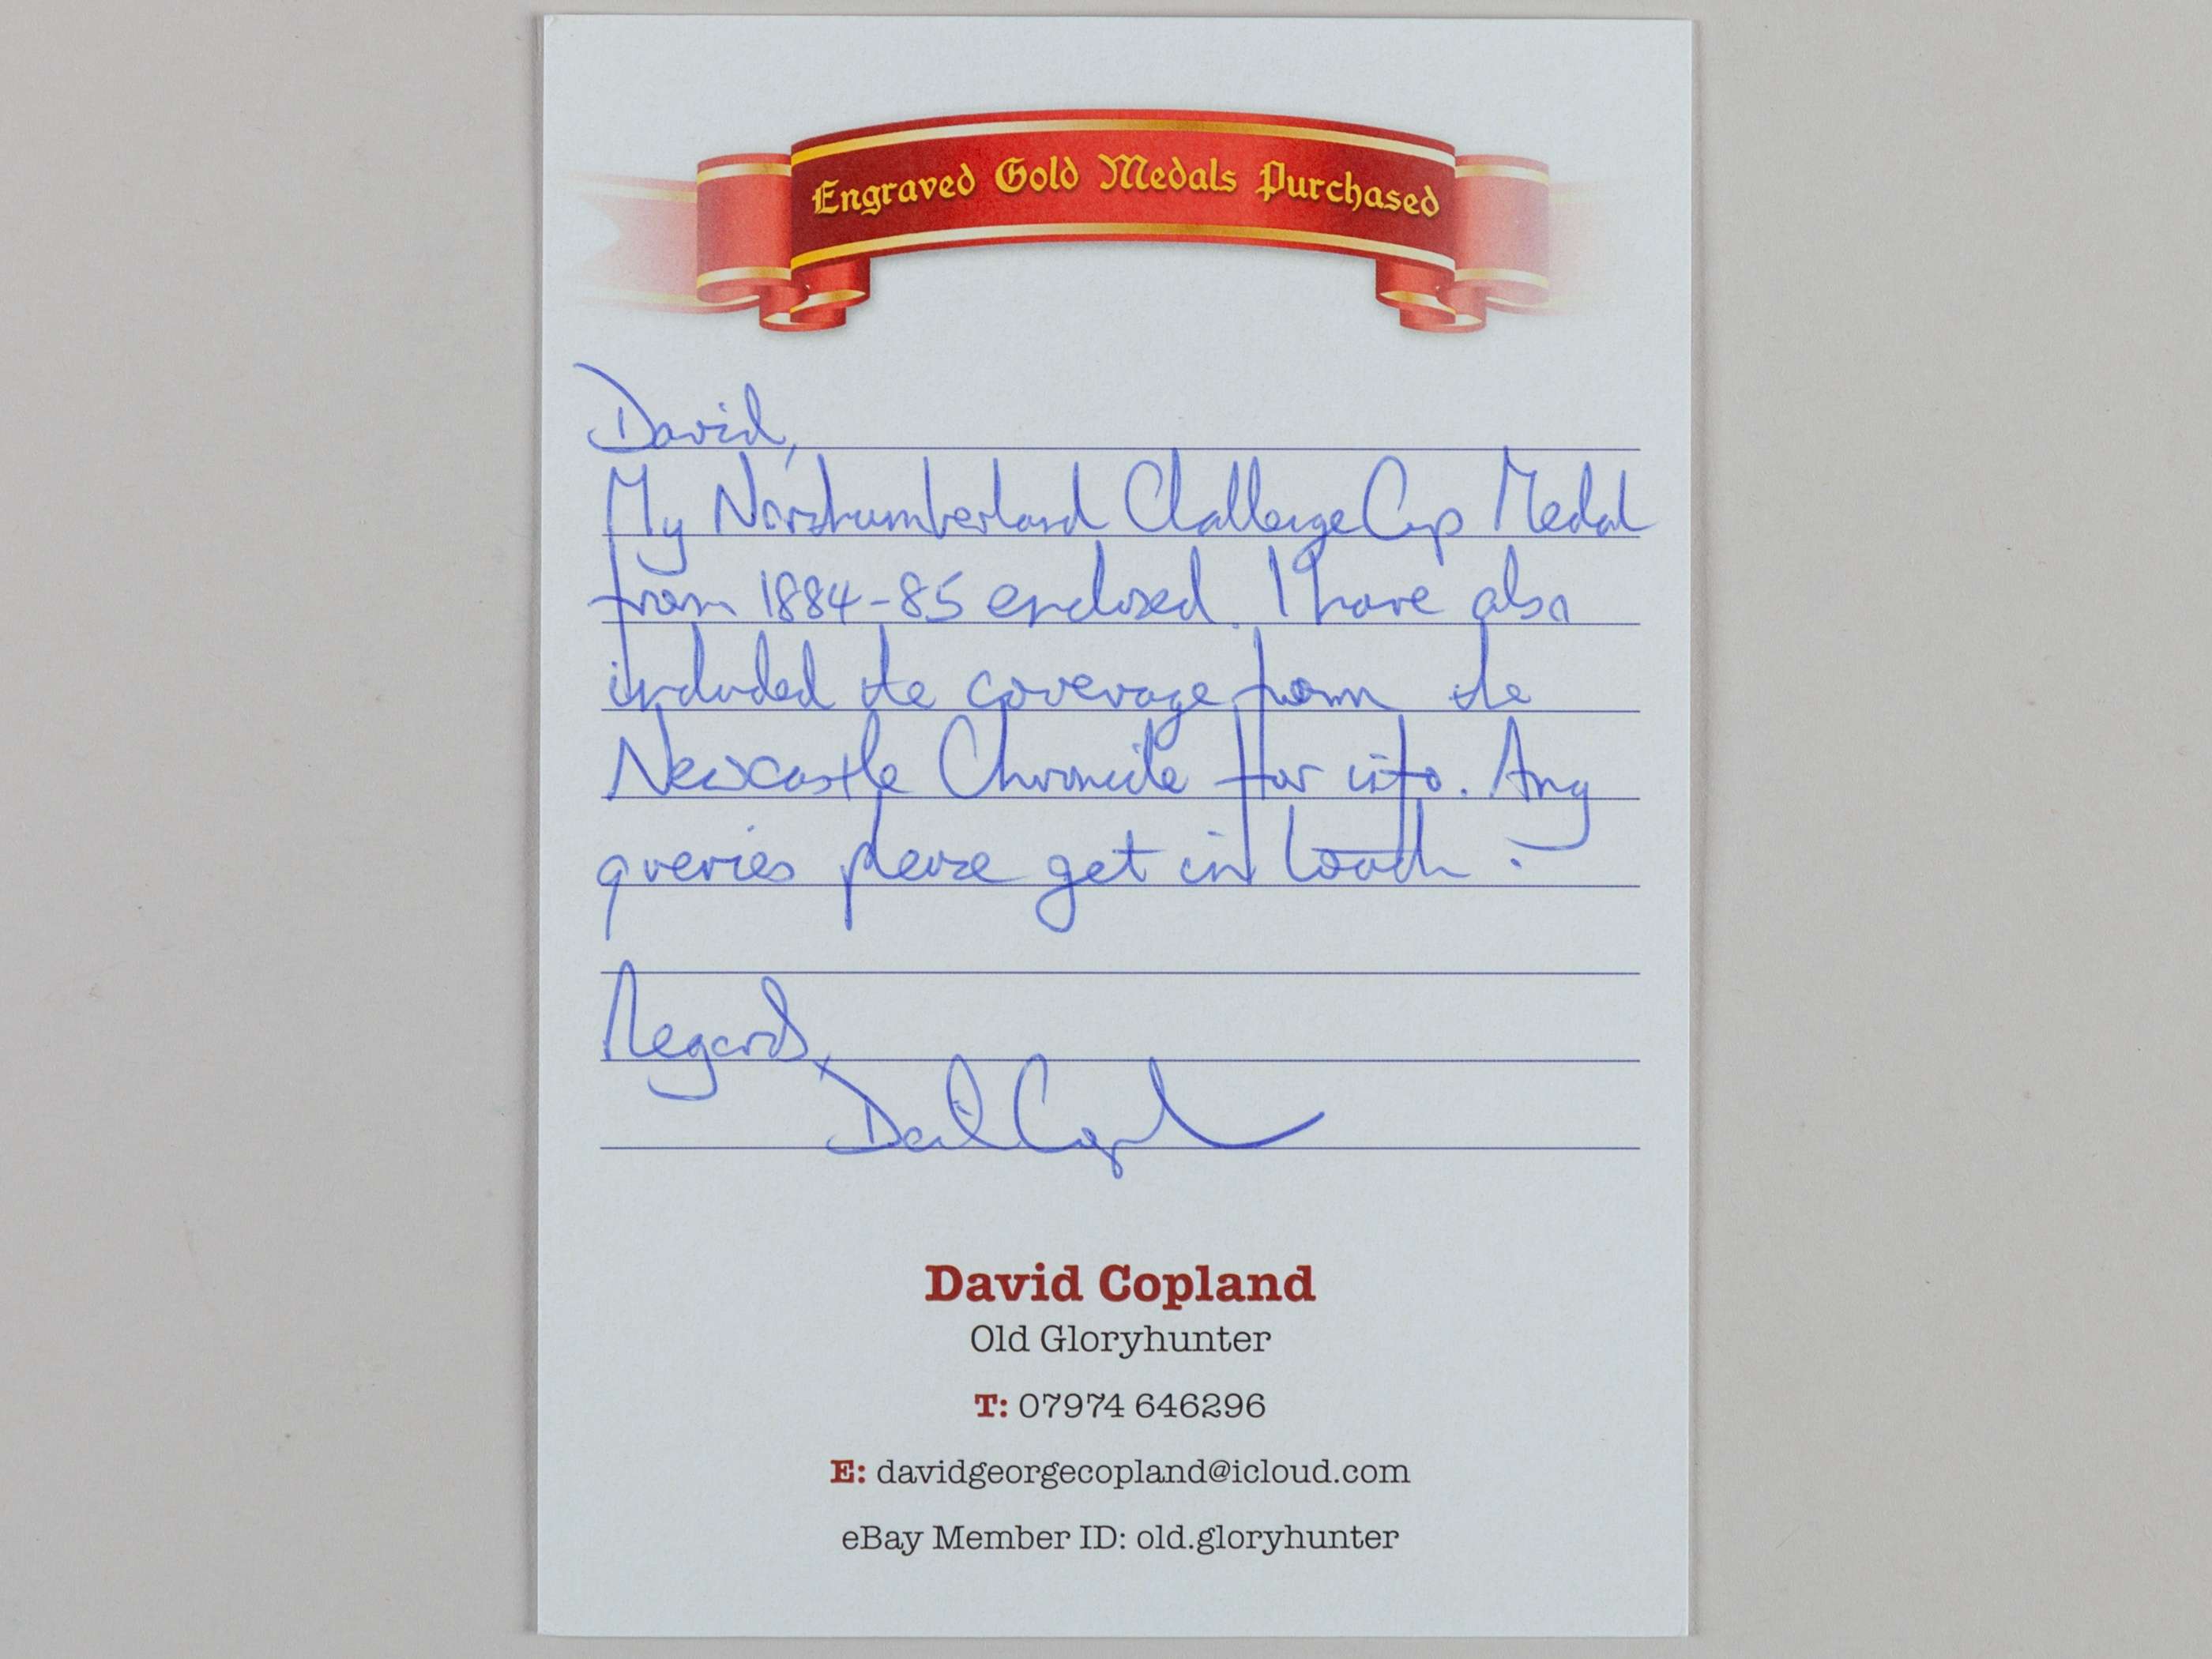 Engraved Gold Medals Purchased
David,
My Northumberland Challenge Cup Medal
from 1884-85 enclosed. I have also
included the coverage from the
Newcastle Chronicle for info. Any
queries please get in touch.
Regards,
David Copland
David Copland
Old Gloryhunter
T: 07974 646296
E: davidgeorgecopland@icloud.com
eBay Member ID: old.gloryhunter